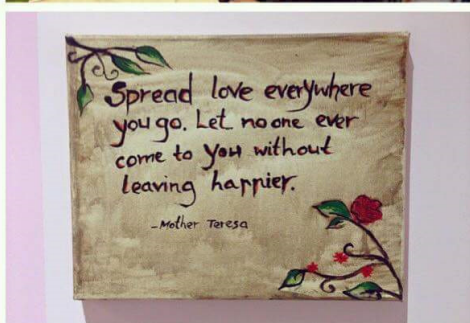 Spread love everywhere
you go. Let no one ever
come to you without
leaving happier.
-Mother Teresa